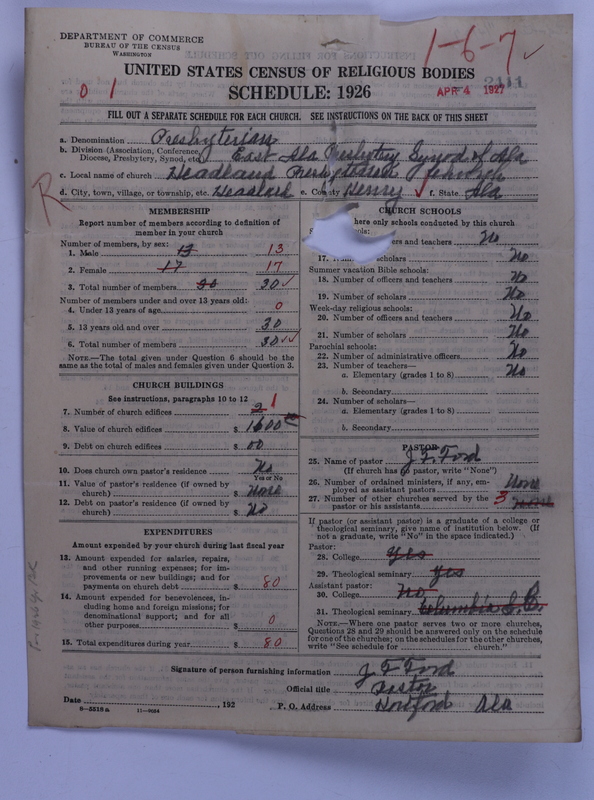 DEPARTMENT OF COMMERCE
BUREAU OF THE CENSUS
WASHINGTON
1-6-7 ✓
UNITED STATES CENSUS OF RELIGIOUS BODIES
2111
0 1
SCHEDULE: 1926
APR 4 1927
FILL OUT A SEPARATE SCHEDULE FOR EACH CHURCH. SEE INSTRUCTIONS ON THE BACK OF THIS SHEET
a. Denomination Presbyterian
b. Division (Association, Conference,
Diocese, Presbytery, Synod, etc. East Ala Presbytery Synod of Ala
c. Local name of church Headland Presbyterian church
R
d. City, town, village, or township, etc. Headland e. County Henry ✓ f. State Ala
MEMBERSHIP
Report number of members according to definition of
member in your church
Number of members, by sex:
1. Male 13 13
2. Female 17 17
3. Total number of members 30 30 ✓
Number of members under and over 13 years old:
4. Under 13 years of age 0
5. 13 years old and over 30
6. Total number of members 30 ✓✓
NOTE.—The total given under Question 6 should be the
same as the total of males and females given under Question 3.
CHURCH BUILDINGS
See instructions, paragraphs 10 to 12
7. Number of church edifices 2 1
8. Value of church edifices $ 1600
9. Debt on church edifices $ 00
10. Does church own pastor's residence No
Yes or No
11. Value of pastor's residence (if owned by
church) $ None
12. Debt on pastor's residence (if owned by
church) $ No
EXPENDITURES
Amount expended by your church during last fiscal year
13. Amount expended for salaries, repairs,
and other running expenses; for im-
provements or new buildings; and for
payments on church debt $ 80
14. Amount expended for benevolences, in-
cluding home and foreign missions; for
denominational support; and for all
other purposes $ 0
15. Total expenditures during year $ 80
CHURCH SCHOOLS
here only schools conducted by this church
ers and teachers No
17. scholars No
Summer vacation Bible schools:
18. Number of officers and teachers No
19. Number of scholars No
Week-day religious schools:
20. Number of officers and teachers No
21. Number of scholars No
Parochial schools:
22. Number of administrative officers No
23. Number of teachers—
a. Elementary (grades 1 to 8) No
b. Secondary
24. Number of scholars—
a. Elementary (grades 1 to 8)
b. Secondary
PASTOR
25. Name of pastor J F Ford
(If church has no pastor, write "None")
26. Number of ordained ministers, if any, em-
ployed as assistant pastors None
27. Number of other churches served by the
pastor or his assistants 3 none
If pastor (or assistant pastor) is a graduate of a college or
theological seminary, give name of institution below. (If
not a graduate, write "No" in the space indicated.)
Pastor:
28. College Yes
29. Theological seminary Yes
Assistant pastor:
30. College No
31. Theological seminary Columbia S.C.
NOTE.—Where one pastor serves two or more churches,
Questions 28 and 29 should be answered only on the schedule
for one of the churches; on the schedules for the other churches,
write "See schedule for church."
Signature of person furnishing information J F Ford
Official title Pastor
Date , 192 P. O. Address Ala
8—5518 a 11—9034